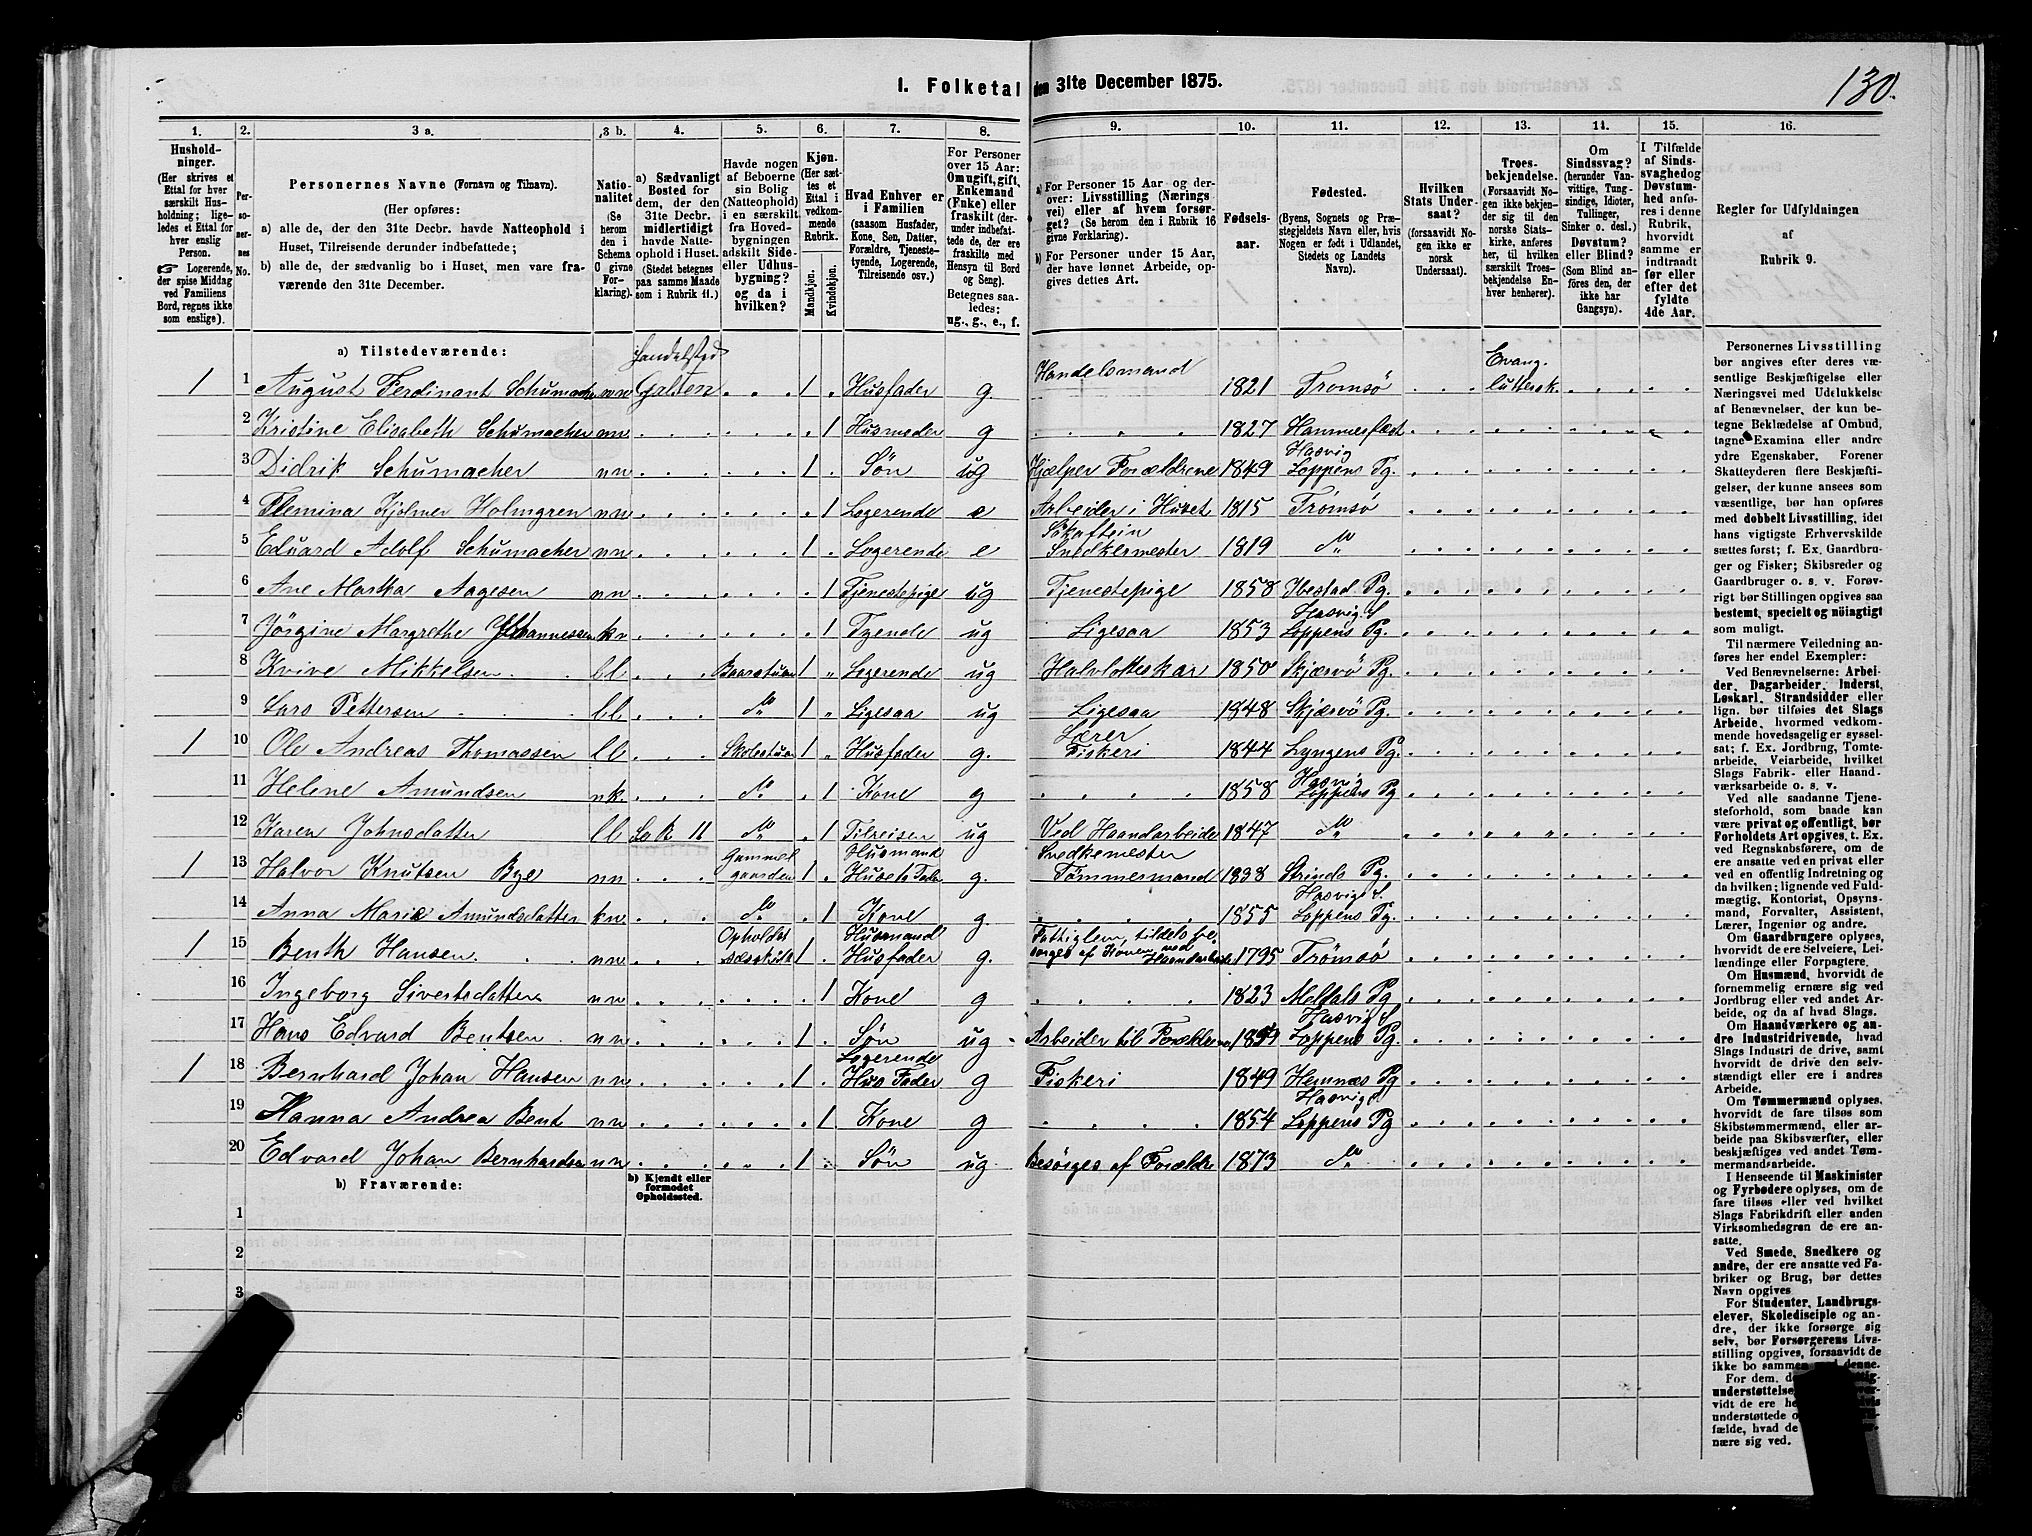 I. Folketal den 31te December 1875.
130.
1. 2. 3 a. 3 b. 4. 5. 6. 7. 8. 9. 10. 11. 12. 13. 14. 15. 16.
Hushold-
ninger.
(Her skrives et
Ettal for hver
særskilt Hus-
holdning; lige-
ledes et Ettal
for hver enslig
Person.
☞ Logerende,
der spise Middag
ved Familiens
Bord, regnes ikke
som enslige).
Per-
so-
ner-
nes
No.
Personernes Navne (Fornavn og Tilnavn).
(Her opføres:
a) alle de, der den 31te Decbr. havde Natteophold i
Huset, Tilreisende derunder indbefattede;
b) alle de, der sædvanlig bo i Huset, men vare fra-
værende den 31te December.
Natio-
nalitet
(Se
herom
den i
Schema
C givne
For-
klaring).
a) Sædvanligt
Bosted for
dem, der den
31te Decbr.
midlertidigt
havde Natte-
ophold i Huset.
(Stedet betegnes
paa samme Maade
som i Rubrik 11.)
Havde nogen
af Beboerne
sin Bolig
(Natteophold)
i en særskilt
fra Hoved-
bygningen
adskilt Side-
eller Udhus-
bygning?
og da i
hvilken?
Kjøn.
(Her sæt-
tes et
Ettal i
vedkom-
mende
Rubrik.
Mandkjøn.
Kvindekjøn.
Hvad Enhver er
i Familien
(saasom Husfader,
Kone, Søn, Datter,
Forældre, Tjeneste-
tyende, Logerende,
Tilreisende osv.)
For Personer
over 15 Aar:
Om ugift, gift,
Enkemand
(Enke) eller
fraskilt (der-
under indbefat-
tede de, der ere
fraskilte med
Hensyn til Bord
og Seng).
Betegnes saa-
ledes:
ug., g., e., f.
a) For Personer 15 Aar og der-
over: Livsstilling (Nærings-
vei) eller af hvem forsør-
get? (Se herom i Rubrik 16
givne Forklaring).
b) For Personer under 15 Aar,
der have lønnet Arbeide, op-
gives dettes Art.
Fødsels-
aar.
Fødested.
(Byens, Sognets og Præ-
stegjeldets Navn eller, hvis
Nogen er født i Udlandet,
Stedets og Landets
Navn).
Hvilken
Stats Under-
saat?
(forsaavidt No-
gen ikke er
norsk
Undersaat).
Troes-
bekjendelse.
(Forsaavidt No-
gen ikke bekjen-
der sig til den
norske Stats-
kirke, anføres
her, til hvilken
særskilt Troes-
bekjendelse En-
hver henhører).
Om
Sindssvag?
(herunder Van-
vittige, Tung-
sindige, Idioter,
Tullinger,
Sinker o. desl.)
Døvstum?
eller Blind?
(Som Blind an-
føres den, der
ikke har
Gangsyn).
I Tilfælde
af Sinds-
svaghed og
Døvstum-
hed anfø-
res i denne
Rubrik,
hvorvidt
samme er
indtraadt
før eller
efter det
fyldte
4de Aar.
Regler for Udfyldningen
af
Rubrik 9.
a) Tilstedeværende:
Handelsted Evang.
1 1 August Ferdinant Schumacher nn Galten 1 Husfader g Handelsmand 1821 Tromsø luttersk.
2 Kristine Elisabeth Schumacher nn 1 Husmoder g 1827 Hammerfæst
3 Didrik Schumacher nn 1 Søn ug Hjælper Forældrene 1849 Hasvig Loppens Pg.
4 Flemina Hjolmer Holmgren nn 1 Logerende e Arbeider i Huset 1815 Tromsø
5 Eduard Adolf Schumacher nn 1 Logerende e Snedkermester 1819 do
6 Ane Martha Aagesen nn 1 Tjenestepige ug Tjenestepige 1858 Ibestad Pg.
7 Jørgine Margrethe Johannessen kn 1 Tyende ug Ligesaa 1853 Hasvig S. Loppens Pg.
8 Kvive Mikkelsen ll Baarstuen 1 Logerende ug Halvlottskar 1850 Skjærvø Pg.
9 Lars Pettersen ll do 1 Ligesaa ug Ligesaa 1848 Skjærvø Pg.
1 10 Ole Andreas Thomassen ll Skolestuen 1 Husfader g. Lærer Fiskeri 1844 Lyngens Pg.
11 Helene Amundsen nk. do 1 Kone g 1858 Hasvig Loppens Pg
12 Karen Johnsdatter ll Se R 11 do 1 Tilreisen ug Ved Haandarbeide 1847 do
1 13 Halvor Knutsen Bye nn Gammel gaarden 1 Husmand Husets Fader g. Snedkemester Tømmermand 1838 Strinds Pg.
14 Anna Marie Amundsdatter kn. do 1 Kone g. 1855 Hasvig S. Loppens Pg.
1 15 Benth Hansen nn. Opholdst 1 Husmand Husfader g. Fattiglem, tildels be- sørges af Konen med Haandarbeide 1795 Tromsø
16 Ingeborg Sivertsdatter nn 1 Kone g 1823 Meldals Pg
17 Hans Edvard Bentsen nn 1 Søn ug Arbeider til Forældrene 1859 Hasvig S Loppens Pg.
1 18 Bernhard Johan Hansen nn 1 Logerende Hus Fader g Fiskeri 1849 Hemnæs Pg
19 Hanna Andrea Bent nn 1 Kone g 1854 Hasvig S Loppens Pg
20 Edvard Johan Bernhardsen nn 1 Søn ug. Besørges af Forældre 1873 do
b) Fraværende:
b) Kjendt eller
formodet
Opholdssted.
1
2
3
6
Personernes Livsstilling
bør angives efter deres væ-
sentlige Beskjæftigelse eller
Næringsvei med Udelukkelse
af Benævnelser, der kun be-
tegne Beklædelse af Ombud,
tagne Examina eller andre
ydre Egenskaber. Forener
Skatteyderen flere Beskjæfti-
gelser, der kunne ansees som
væsentlige, bør han opføres
med dobbelt Livsstilling, idet
hans vigtigste Erhvervskilde
sættes først; f. Ex. Gaardbru-
ger og Fisker; Skibsreder og
Gaardbruger o. s. v. Forøv-
rigt bør Stillingen opgives saa
bestemt, specielt og nöiagtigt
som muligt.
Til nærmere Veiledning an-
føres her endel Exempler:
Ved Benævnelserne: Arbei-
der, Dagarbeider, Inderst,
Løskarl, Strandsidder eller
lign. bør tilføies det Slags
Arbeide, hvormed vedkom-
mende hovedsagelig er syssel-
sat; f. Ex. Jordbrug, Tomte-
arbeide, Veiarbeide, hvilket
Slags Fabrik- eller Haand-
værksarbeide o. s. v.
Ved alle saadanne Tjene-
steforhold, som baade kan
være privat og offentligt, bør
Forholdets Art opgives, t. Ex.
ved Regnskabsførere, hvor de
ere ansatte ved en privat eller
ved en offentlig Indretning og
da hvilken; lignende ved Fuld-
mægtig, Kontorist, Opsyns-
mand, Forvalter, Assistent,
Lærer, Ingeniør og andre.
Om Gaardbrugere oplyses,
hvorvidt de ere Selveiere, Lei-
lændinge eller Forpagtere.
Om Husmænd, hvorvidt de
fornemmelig ernære sig ved
Jordbrug eller ved andet Ar-
beide, og da af hvad Slags.
Om Haandværkere og an-
dre Industridrivende, hvad
Slags Industri de drive, samt
hvorvidt de drive den selv-
stændigt eller ere i andres
Arbeide.
Om Tømmermænd oplyses,
hvorvidt de fare tilsøs som
Skibstømmermænd, eller ar-
beide paa Skibsværfter, eller
beskjæftiges ved andet Tøm-
mermandsarbeide.
I Henseende til Maskinister
og Fyrbødere oplyses, om de
fare tilsøs eller ved hvilket
Slags Fabrikdrift eller anden
Virksomhedsgren de ere an-
satte.
Ved Smede, Snedkere og
andre, der ere ansatte ved Fa-
briker og Brug, bør dettes
Navn opgives.
For Studenter, Landbrugs-
elever, Skoledisciple og an-
dre, der ikke forsørge sig
selv, bør Forsørgerens Livs-
stilling opgives, forsaavidt de
ikke bo sammen med denne.
For dem, d
understøttelse,
vidt de ere he
understøttede o
fælde, hvad de
nære sig ved.